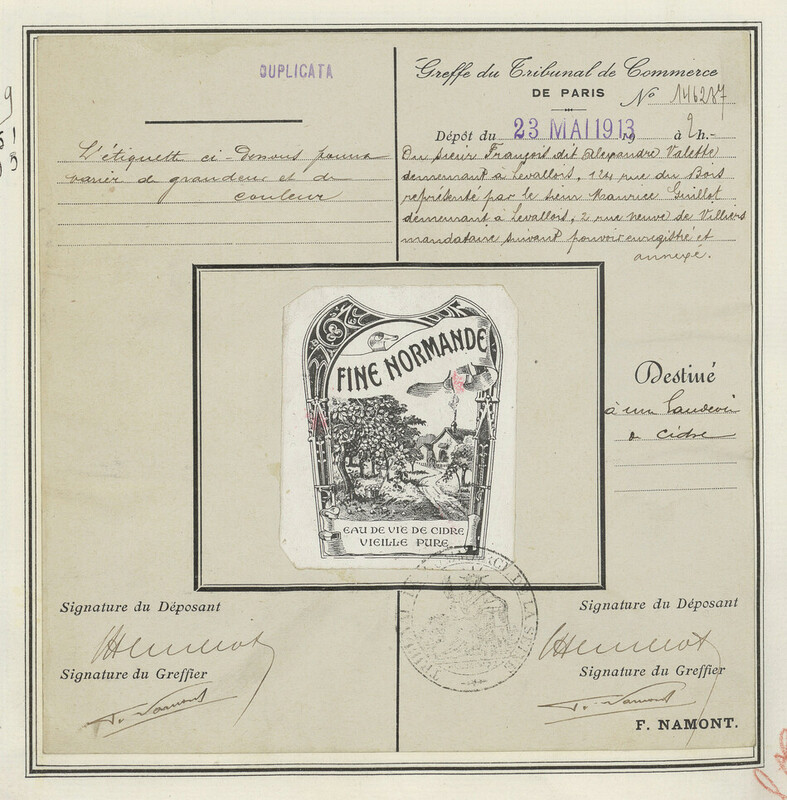 DUPLICATA
L'étiquette ci-dessous pourra
varier de grandeur et de
couleur
Greffe du Tribunal de Commerce
DE PARIS
No 146287
Dépôt du 23 MAI 1913 à 2 h.-
Du sieur François dit Alexandre Valette
demeurant à Levallois, 124 rue du Bois
représenté par le sieur Maurice Guillot
demeurant à Levallois, 2 rue neuve de Villiers
mandataire suivant pouvoir enregistré et
annexé.
FINE NORMANDE
EAU DE VIE DE CIDRE
VIEILLE PURE
Destiné
à une
cidre
TRIBUNAL DE COMMERCE DE LA SEINE
Signature du Déposant
Signature du Greffier
F. Namont
Signature du Déposant
Signature du Greffier
F. Namont
F. NAMONT.